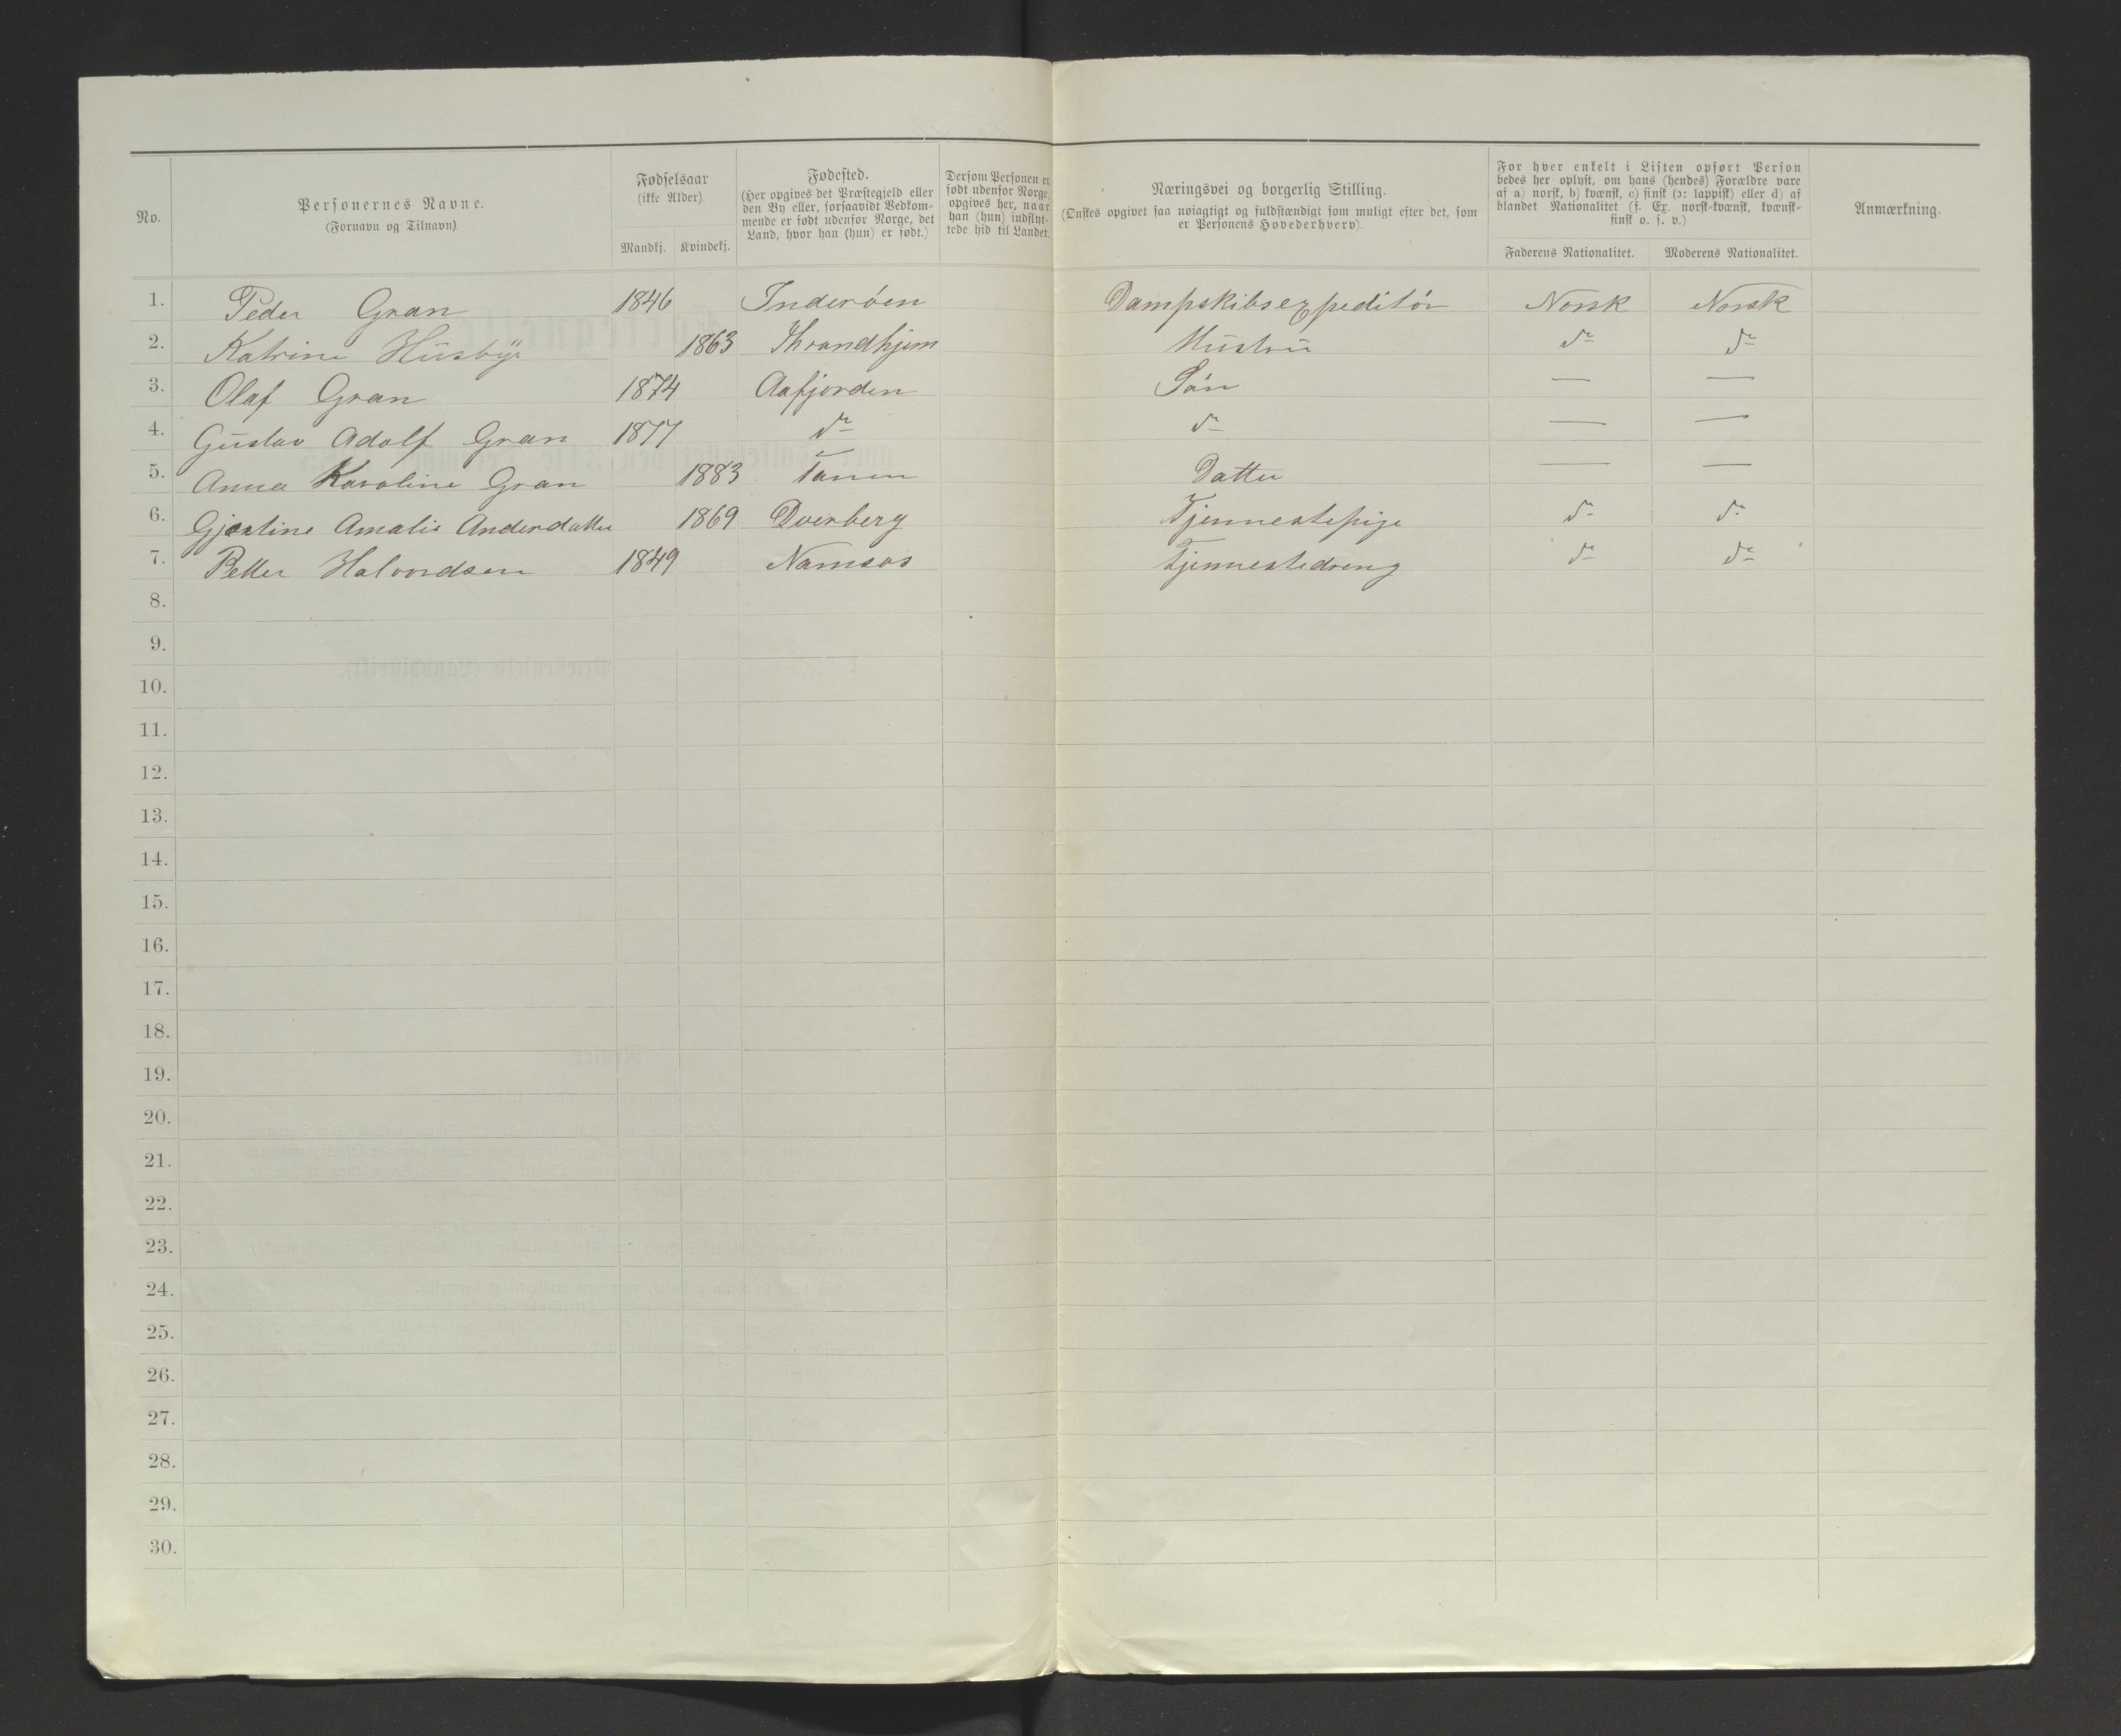 No.
Personernes Navne.
(Fornavn og Tilnavn).
Fødselsaar
(ikke Alder).
Mandkj. Kvindekj.
Fødested.
(Her opgives det Præstegjeld eller
den By eller, forsaavidt Vedkom-
mende er født udenfor Norge, det
Land, hvor han (hun) er født.)
Dersom Personen er
født udenfor Norge,
opgives her, naar
han (hun) indflyt-
tede hid til Landet.
Næringsvei og borgerlig Stilling.
(Ønskes opgivet saa nøiagtigt og fuldstændigt som muligt efter det, som
er Personens Hovederhverv).
For hver enkelt i Listen opført Person
bedes her oplyst, om hans (hendes) Forældre vare
af a) norsk, b) kvænsk, c) finsk (ɔ: lappisk) eller d) af
blandet Nationalitet (f. Ex. norsk-kvænsk, kvænsk-
finsk o. s. v.)
Faderens Nationalitet. Moderens Nationalitet.
Anmærkning.
1. Peder Gran 1846 Inderöen Dampskibsexpeditör Norsk Norsk
2. Katrine Husbÿe 1863 Thrandhjem Hustru do do
3. Olaf Gran 1874 Aafjorden Sön — —
4. Gustav Adolf Gran 1877 do do — —
5. Anna Karoline Gran 1883 Tanen Datter — —
6. Gjertine Amalie Andersdatter 1869 Dverberg Tjennestepige do do
7. Petter Halvordsen 1849 Namsos Tjennestedreng do do
8.
9.
10.
11.
12.
13.
14.
15.
16.
17.
18.
19.
20.
21.
22.
23.
24.
25.
26.
27.
28.
29.
30.